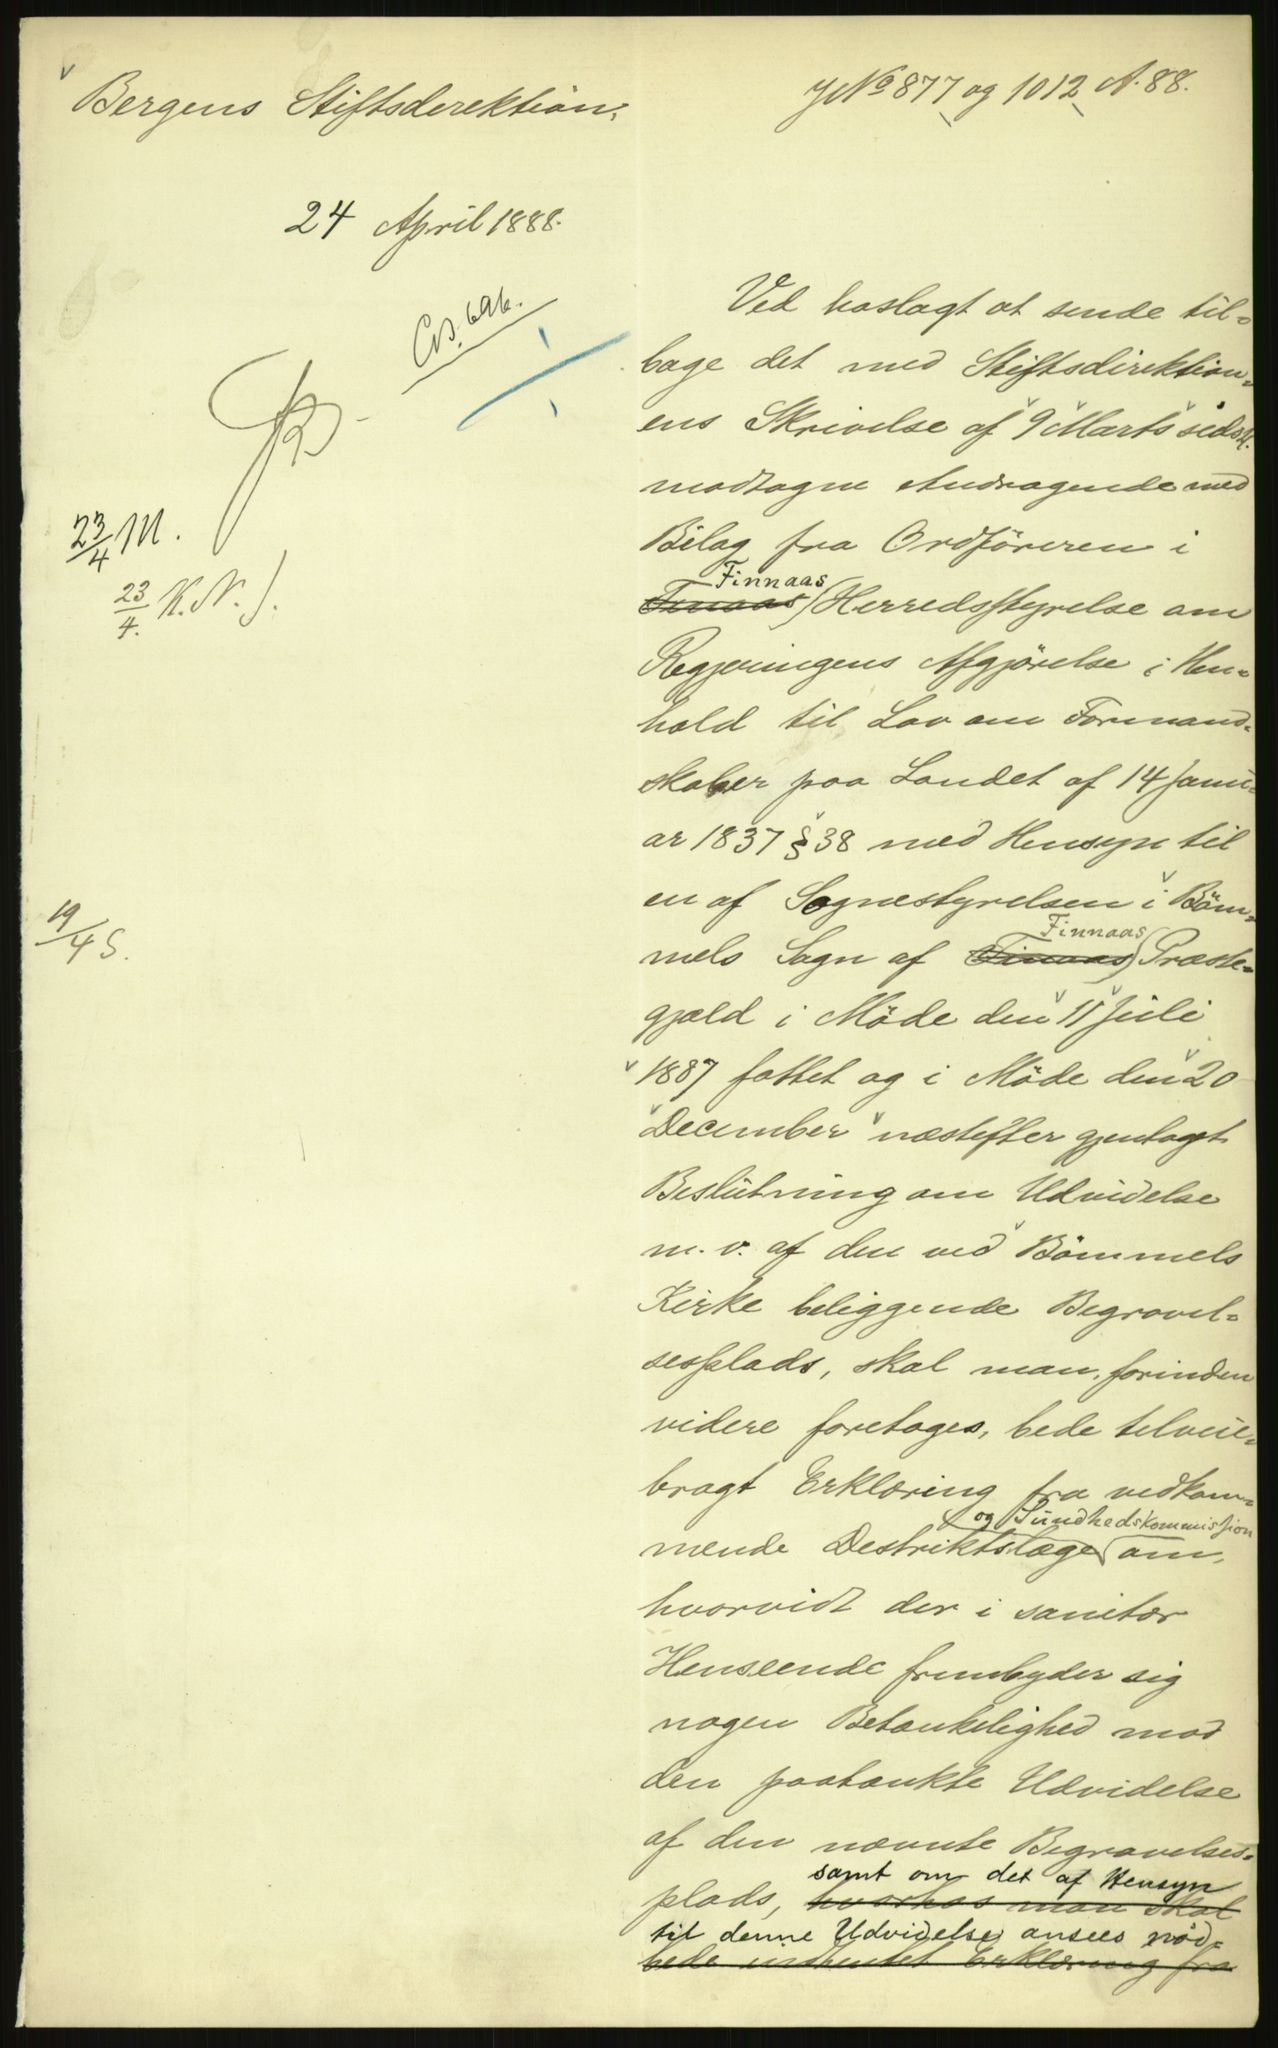 JNº 877 og 1012 A. 88.
Bergens Stiftsdirektion.
24 April 1888.
23/4 M.
23/4. K. N. J.
19/4 S.
Ved hoslagt at sende til=
bage det med Stiftsdirektion=
ens Skrivelse af 9 Marts sidstl.
modtagne Andragende med
Bilag fra Ordföreren i
Finnaas
Finaas Herredsstyrelse om
Regjeringens Afgjörelse i Hen=
hold til Lov om Formand=
skaber paa Landet af 14 Janu=
ar 1837 § 38 med Hensyn til
en af Sognestyrelsen i Böm=
Finnaas
mels Sogn af Finaas Præste=
gjæld i Möde den 11 Juli
1887 fattet og i Möde den 20
December næstefter gjentaget
Beslutning om Udvidelse
m. v. af den ved Bömmels
Kirke beliggende Begravel=
sesplads, skal man, forinden
videre foretages, bede tilveie=
bragt Erklæring fra vedkom=
og Sundhedskommission
mende Distriktslæge om,
hvorvidt der i sanitær
Henseende frembyder sig
nogen Betænkelighed mod
den paatænkte Udvidelse
af den nævnte Begravelses=
samt om det af Hensyn
plads, hvorhos man skal
til denne Udvidelse ansees nöd=
bede indhentet Erklæring fra